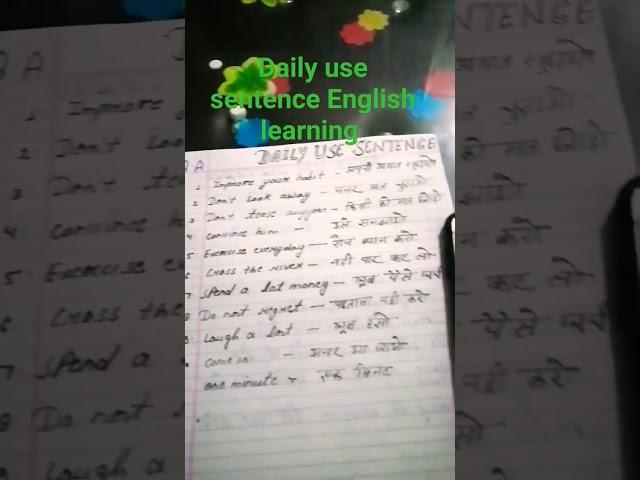 Daily use
sentence English
learning
DAILY USE SENTENGE
1 Improve your habit - अपनी आदत सुधारो
2 Don't Look away - नजर मत चुराओ
3 Don't tease anyone - किसी को मत
4 Convince him - उसे समझाओ
5 Exercise everyday - रोज
6 Cross the river - नदी पार कर लो
7 Spend a lot money - खूब पैसे
8 Do not regret - पछतावा नही करो
Laugh a lot - खूब हंसो
Come in - अन्दर आ जाओ
one minute - एक मिनट